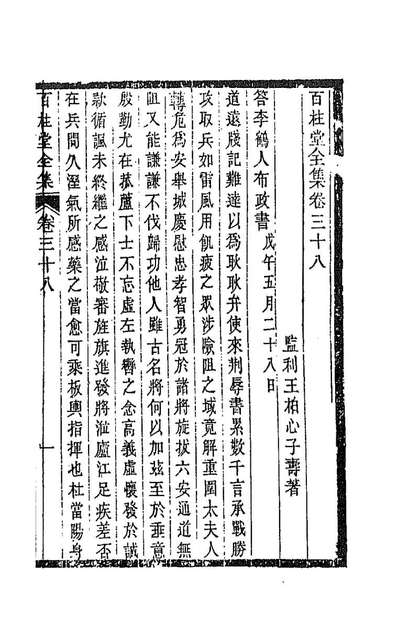 百柱堂全集卷三十八
監利王柏心子壽著
答李鶴人布政書戊午五月二十八日
道遠牋記難達以爲耿耿弁使來荆辱書累數千言承戰勝
攻取兵如雷風用飢疲之眾涉險阻之域竟解重圍太夫人
轉危爲安舉城慶慰忠孝智勇冠於諸將旋拔六安通道無
阻又能謙謙不伐歸功他人雖古名將何以加玆至於垂意
殷勤尤在菰蘆下士不忘虛左執轡之念高義虛懷發於誠
欵循諷未終繼之感泣敬審旌旗進發將涖廬江足疾差否
在兵間久溼氣所感藥之當愈可乘板輿指揮也杜當陽身
百柱堂全集
卷三十八
一